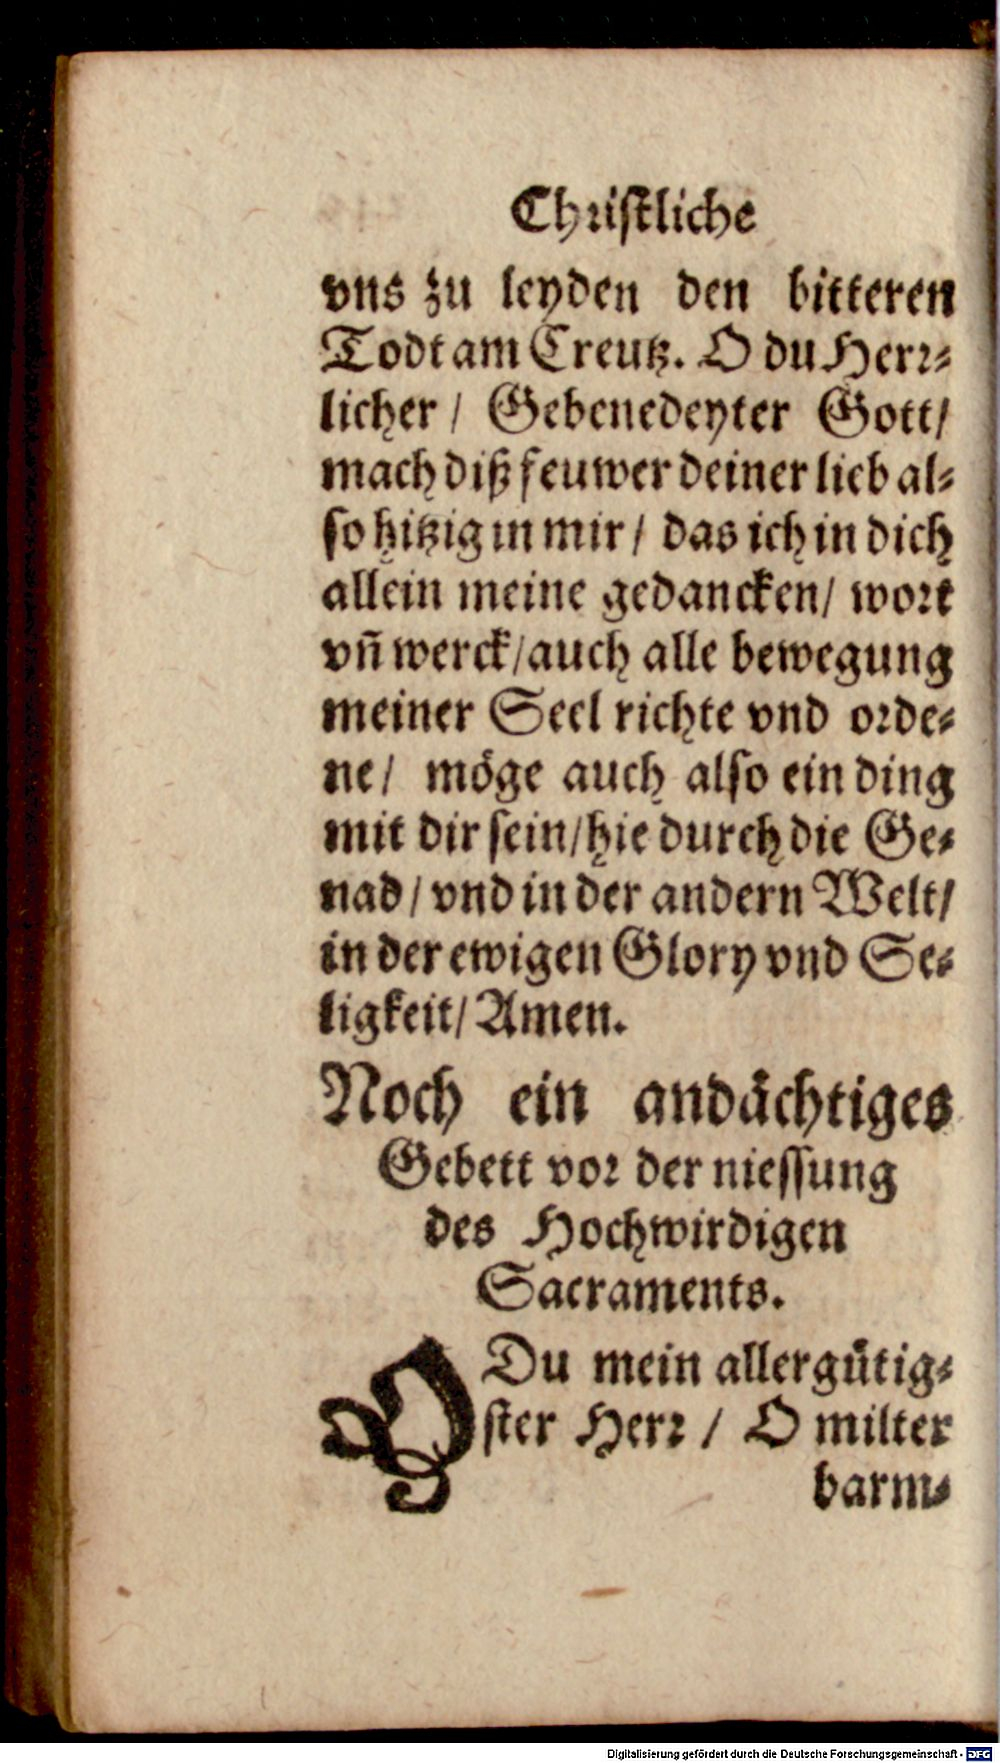 Christliche
vns zu leyden den bitteren
Todt am Creutz. O du Herr-
licher / Gebenedeyter Gott/
mach diß feuwer deiner lieb al-
so hitzig in mir / das ich in dich
allein meine gedancken/ wort
vñ werck/auch alle bewegung
meiner Seel richte vnd orde-
ne / möge auch also ein ding
mit dir sein/hie durch die Ge-
nad / vnd in der andern Welt/
in der ewigen Glory vnd Se-
ligkeit/ Amen.
Noch ein andächtiges
Gebett vor der niessung
des Hochwirdigen
Sacraments.
O Du mein allergütig-
ster Herr / O milter
barm-
Digitalisierung gefördert durch die Deutsche Forschungsgemeinschaft - DFG